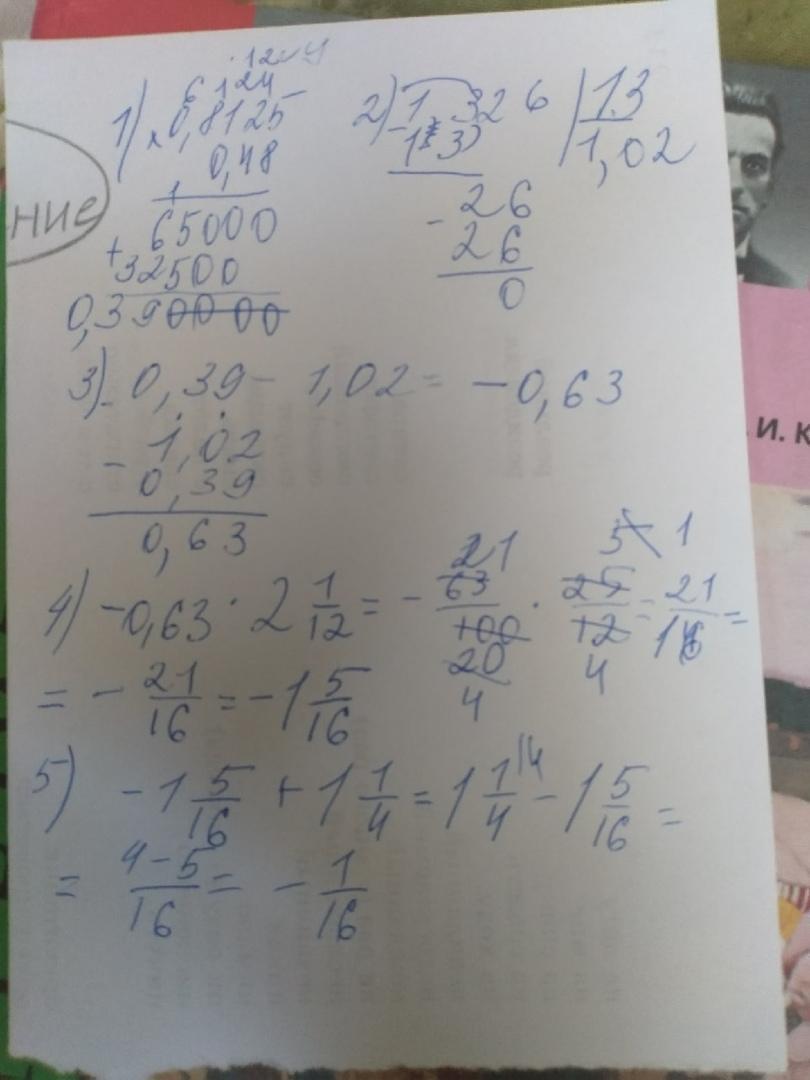 ние
1) × 0,8125
0,48
65000
+ 32500
0,390000
2) 1326 | 13
- 13 1,02
- 26
26
0
3) 0,39 - 1,02 = -0,63
- 1,02
0,39
0,63
4) -0,63 · 2 1/12 = - 63/100 · 25/12 = 21/16 =
= - 21/16 = -1 5/16
5) -1 5/16 + 1 1/4 = 1 1/4 - 1 5/16 =
= 4-5/16 = - 1/16
. И. К